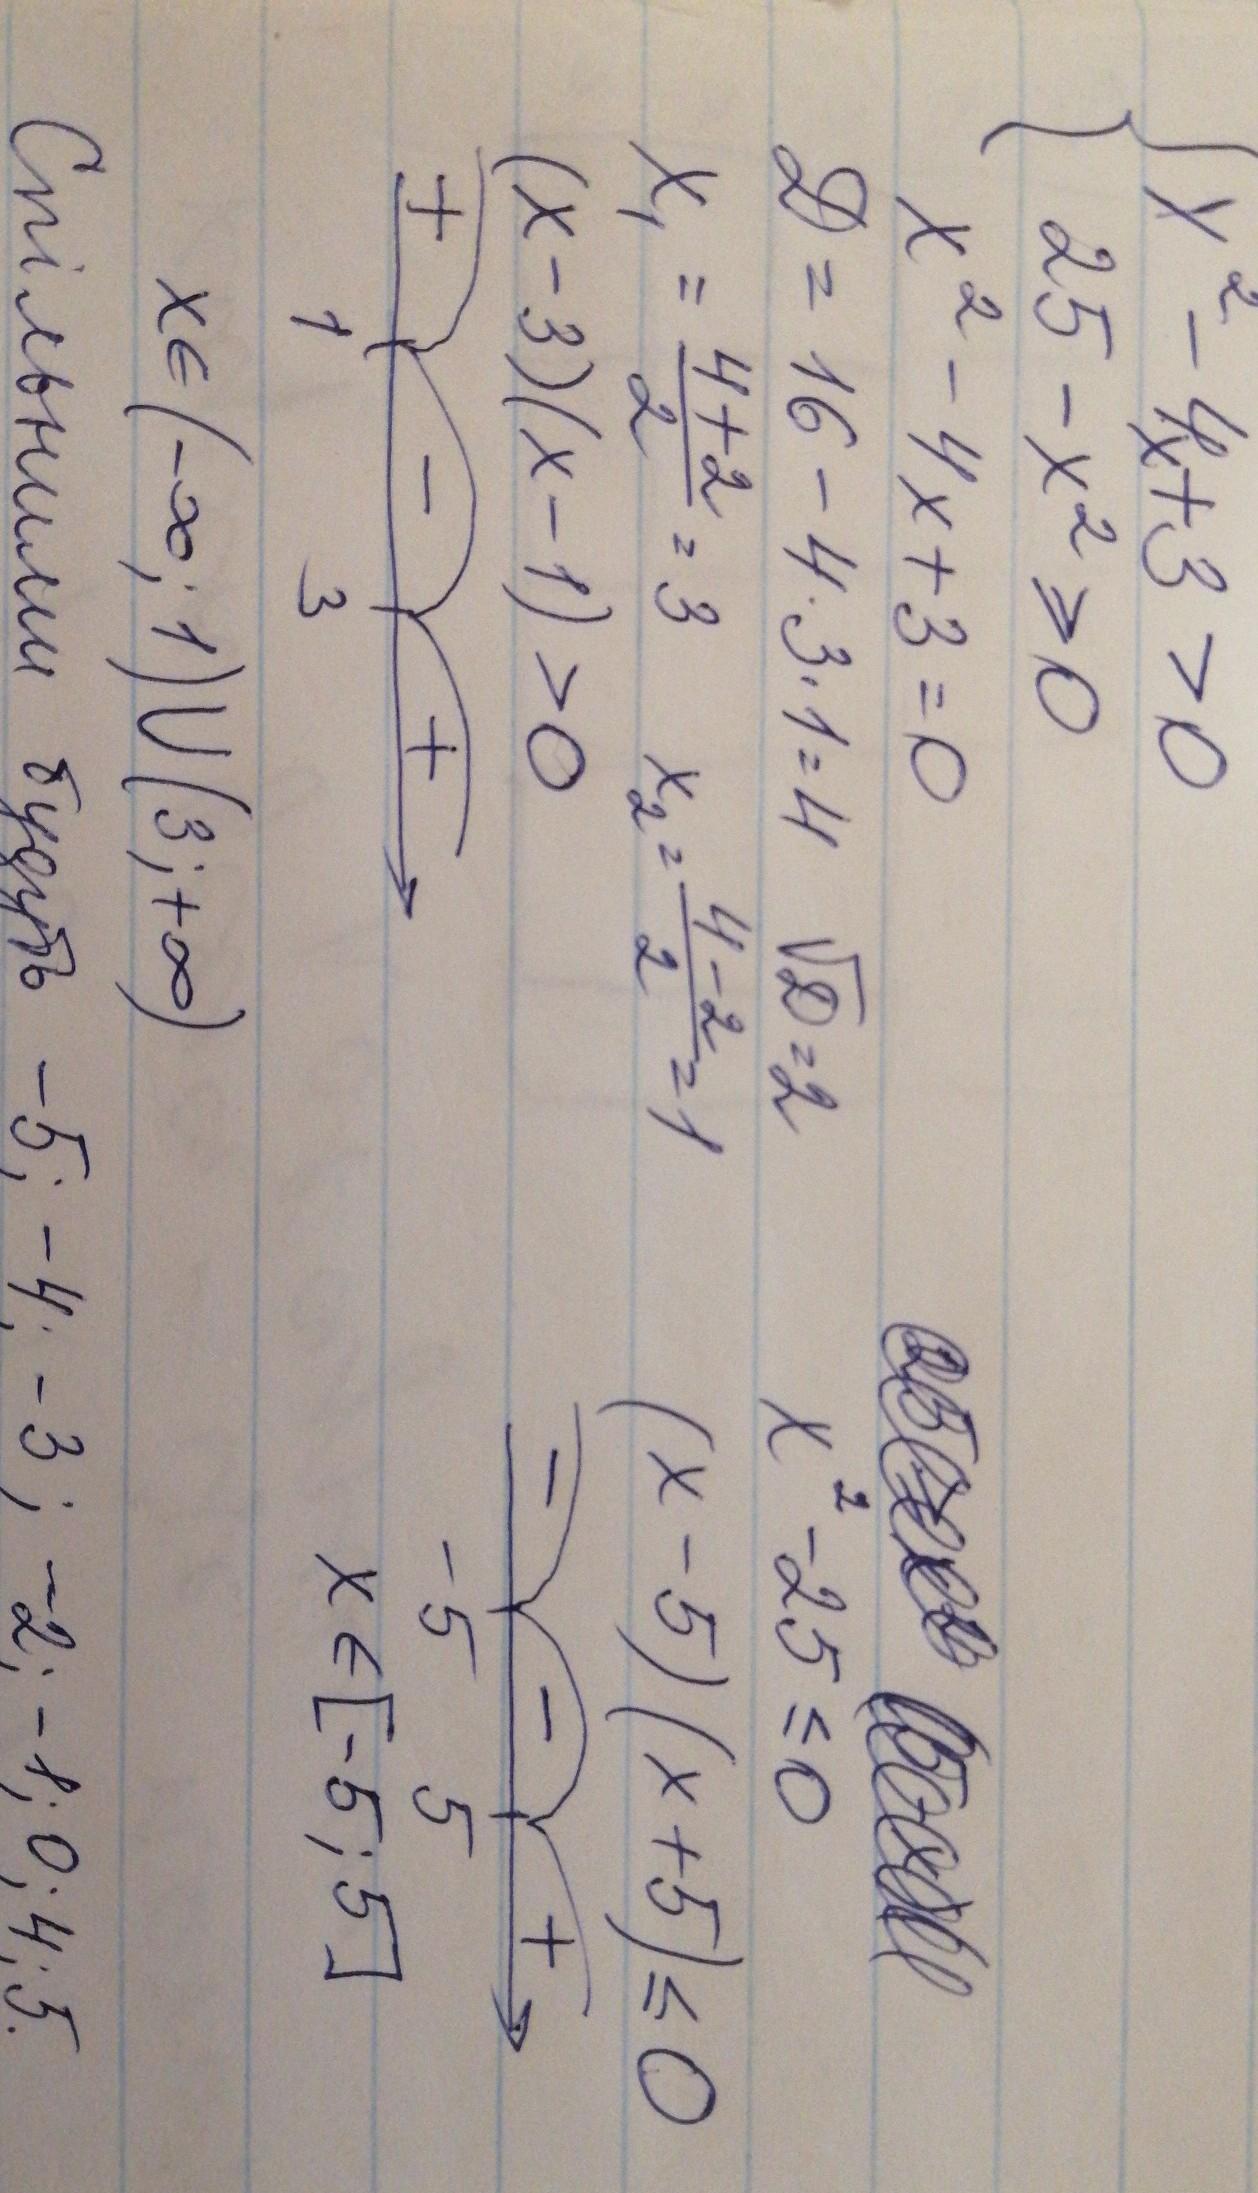 { x² - 4x + 3 > 0
25 - x² ≥ 0
x² - 4x + 3 = 0
D = 16 - 4·3·1 = 4 √D = 2
x₁ = (4+2)/2 = 3 x₂ = (4-2)/2 = 1
(x-3)(x-1) > 0
+ - +
1 3
x∈(-∞; 1)∪(3; +∞)
x² - 25 ≤ 0
(x - 5)(x + 5) ≤ 0
- - +
-5 5
x∈[-5; 5]
Спільними будуть -5; -4; -3; -2; -1; 0; 4; 5.